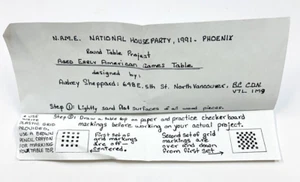 N.A.M.E. NATIONAL HOUSEPARTY, 1991 - PHOENIX
Round Table Project
Aged Early American Games Table
designed by:
Aubrey Sheppard: 648 E. 5th St. North Vancouver, BC CDN
V7L 1M9
Step ①: Lightly sand flat surfaces of all wood pieces.
Step ②: Draw a table top on paper and practice checker board
markings before working on your actual project.
• USE
PLASTIC GRID
PROVIDED,
USE A BROWN
PENCIL CRAYON
FOR MARKING
ON TABLE TOP
First set of
grid markings
are off-
centered.
Second set of grid
markings are
over and down
from first set